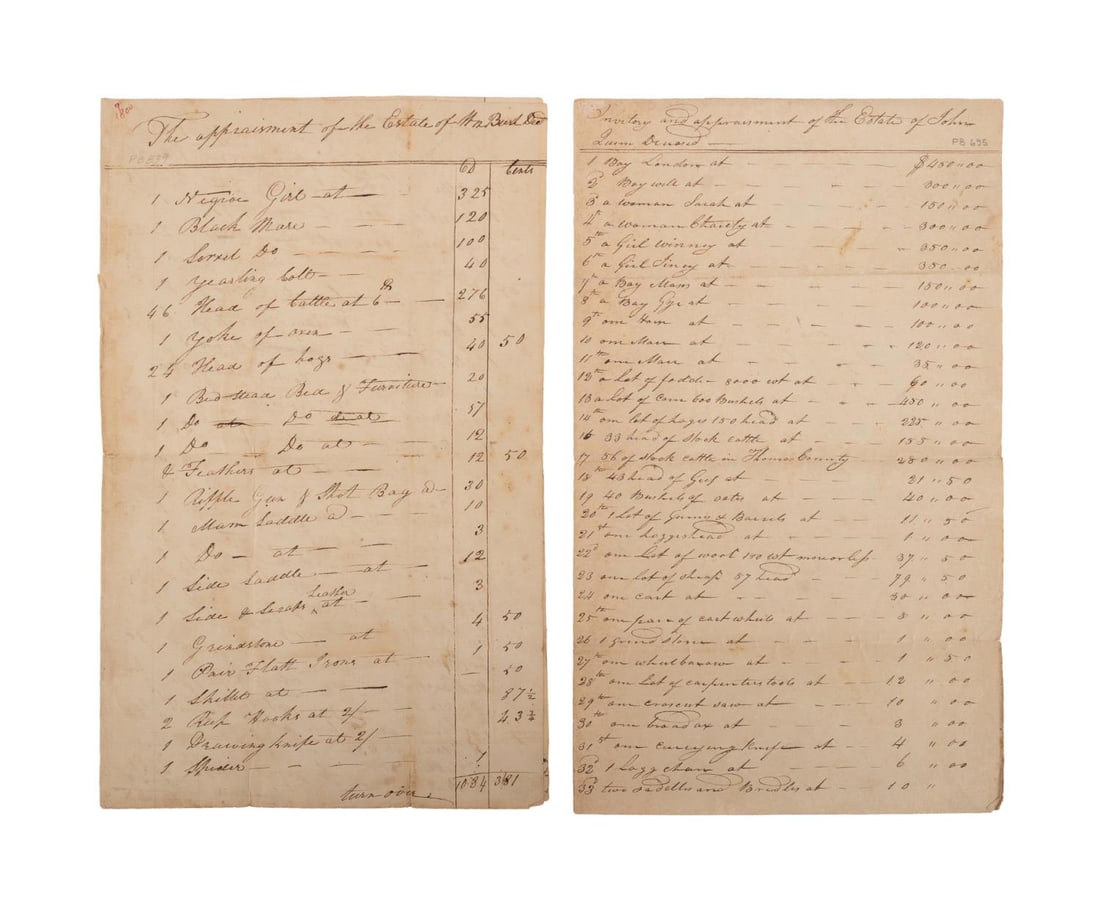 1800
The appraisment of the Estate of Wm Bird Decd
PB 839
Cd Cents
1 Negroe Girl - at — 325
1 Black Mare — — — 120
1 Sorrel Do — — — 100
1 Yearling Colt — — 40
46 Head of Cattle at 6 — — 276
1 Yoke of oxen — — — 55
25 Head of hogs — — — 40 50
1 Bed-stead Bed & Furniture — 20
1 Do at Do do at 57
1 Do — Do at — — 12
4 Feathers at — — — 12 50
1 Riffle Gun & Shot Bag at — 30
1 Mans Saddle a — — 10
1 Do — at — — — 3
1 Side Saddle — at — 12
1 Side & Scraps Leather at — — 3
1 Grindstone — at — 4 50
1 Pair Flatt Irons at — 1 50
1 Skillet at — — — 50
2 Reep Hooks at 2/- — 87½
1 Drawing knife at 2/- — 43¾
1 Spider — — — 1
turn over 1084 3 81
Invitory and appraisment of the Estate of John
Quinn Deceasd —
PB 695
1 Boy London at — — — $450,,00
2d Boy will at — — — 300,,00
3d a woman Sarah at — — — 150,,00
4th a woman Charity at — — — 300,,00
5th a Girl Winney at — — — 350,,00
6th a Girl Siney at — — — 350,,00
7th a Boy Mass at — — — 150,,00
8th a Bay at — — — 100,,00
9th one at — — — 100,,00
10 one Mare at — — — 120,,00
11th one Mare at — — — 35,,00
12th a Lot of foddr 8000 wt at — — 60,,00
13 a Lot of Corn 600 Bushels at — — 450,,00
14th one lot of hoges 150 head at — — 225,,00
16 33 head of Stock cattle at — — 155,,00
17 56 of stock cattle in Thomas County 280,,00
18th 43 head of at — — — 21,,50
19 40 Bushels of oates at — — — 40,,00
20th 1 Lot of & Barrels at — — 11,,50
21st one hoggshead at — — — 1,,00
22d one Lot of wool 150 wt more or less 37,,50
23 one lot of sheap 57 head — — 79,,50
24 one cart at — — — 30,,00
25th one pare of cart wheels at — — 8,,00
26 1 grind Stone at — — — 1,,00
27th one wheel barrow at — — — 1,,50
28th one Lot of carpenters tools at — 12,,00
29th one croscut saw at — — 10,,00
30th one broad ax at — — 3,,00
31st one currying knife at — 4,,00
32d 1 Logg chain at — — 6,,00
33d two Sadelles and Bridles at — 10,,